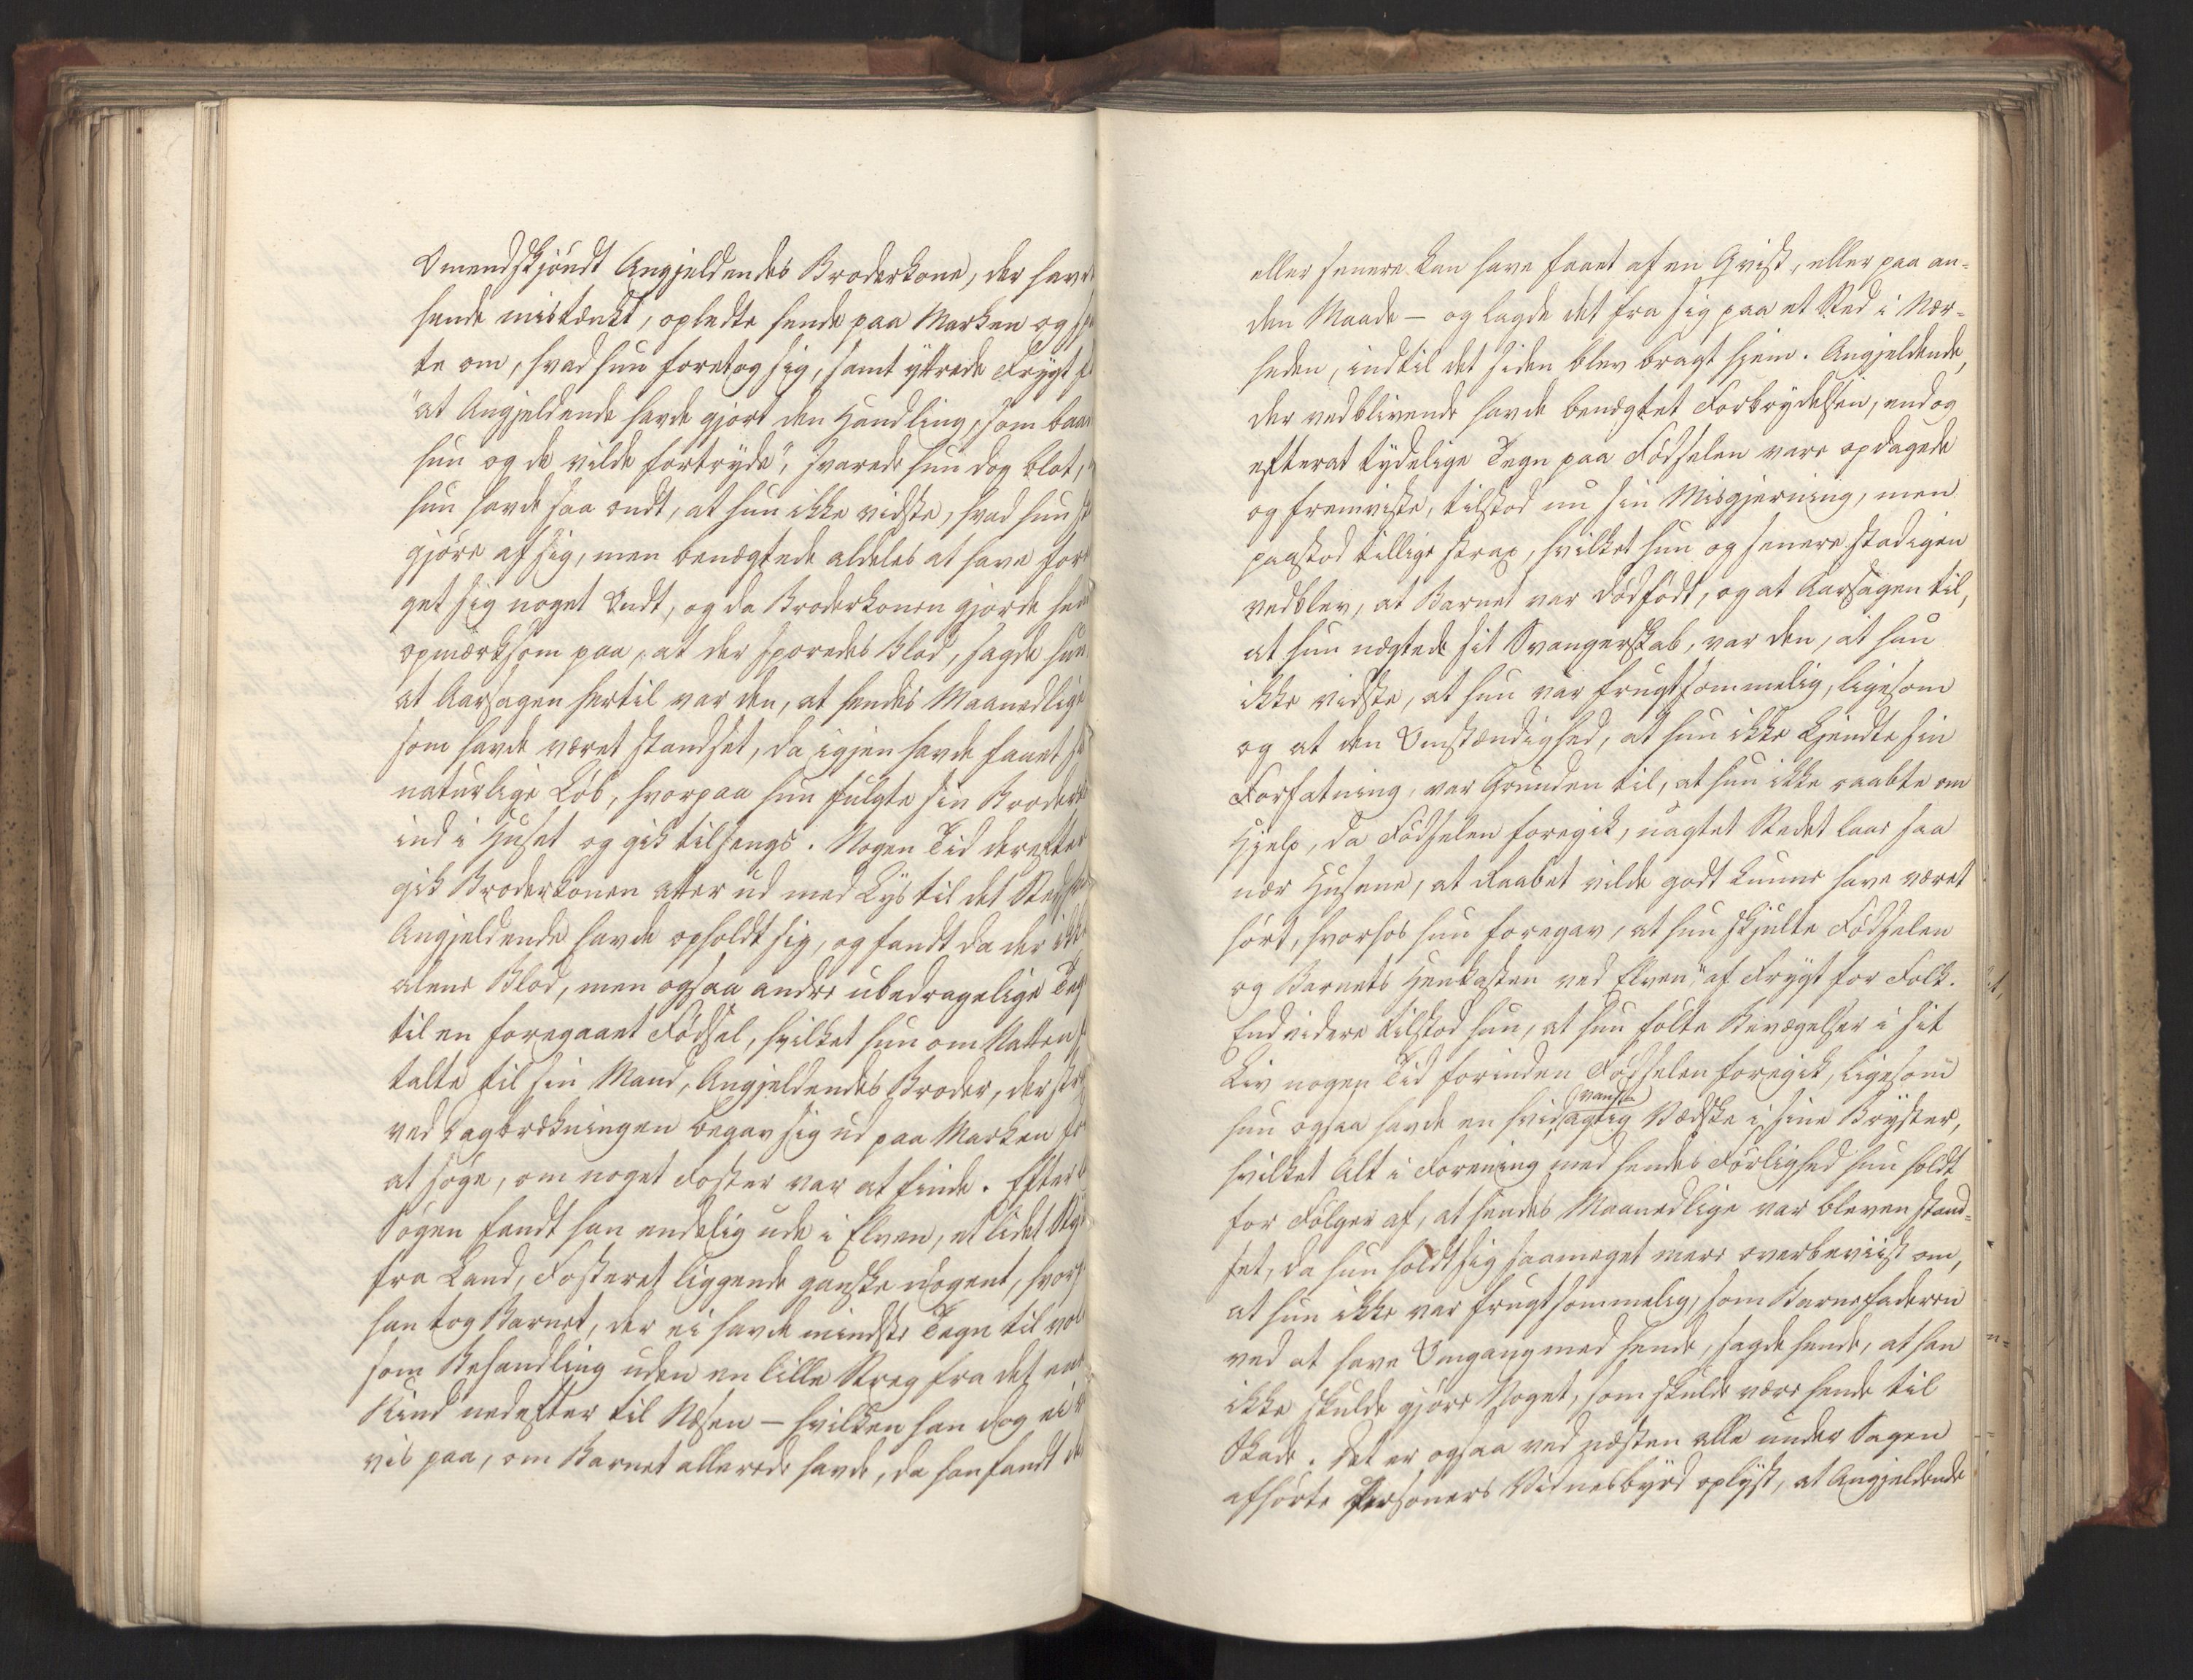 Omendskjöndt Angjeldendes Broderkone, der havde
hende mistænkt, opledte hende paa Marken og
te om, hvad hun foretog sig, samt yttrede Frygt
"at Angjeldende havde gjort den Handling, som baade
hun og de vilde fortryde", svarede hun dog blot,
hun havde saa ondt, at hun ikke vidste, hvad hun
gjöre af sig, men benægtede aldeles at have fore
get sig noget Ondt, og da Broderkonen gjorde hende
opmærksom paa, at der sporedes Blod, sagde hun
at Aarsagen hertil var den, at hendes Maanedlige
som havde været standset, da igjen havde faaet
naturlige Löb, hvorpaa hun fulgte sin Broder
ind i Huset og gik tilsengs. Nogen Tid derefter
gik Broderkonen atter ud med Lys til det Sted
Angjeldende havde opholdt sig, og fandt da der ikke
alene Blod, men ogsaa andre ubedragelige Tegn
til en foregaaet Födsel, hvilket hun om Natten
talte til sin Mand, Angjeldendes Broder, der
ved Dagbrækningen begav sig ud paa Marken
at söge, om noget Foster var at finde. Efter
Sögen fandt han endelig ude i Elven, et lidet
fra Land, Fosteret liggende ganske nögent,
han tog Barnet, der ei havde mindste Tegn til vold
som Behandling uden en lille Streg fra det ene
Kind nedefter til Næsen – hvilken han dog ei
vis paa, om Barnet allerede havde, da han fandt
eller senere kan have faaet af en Qvist, eller paa an-
den Maade – og lagde det fra sig paa et Sted i Nær-
heden, indtil det siden blev bragt hjem. Angjeldende,
der vedblivende havde benægtet Forbrydelsen, endog
efterat tydelige Tegn paa Födselen vare opdagede
og fremviste, tilstod nu sin Misgjerning, men
paastod tillige strax, hvilket hun og senere stadigen
vedblev, at Barnet var dödfödt, og at Aarsagen til,
at hun nægtede sit Svangerskab, var den, at hun
ikke vidste, at hun var frugtsommelig, ligesom
og at den Omstændighed, at hun ikke kjendte sin
Forfatning, var Grunden til, at hun ikke raabte om
Hjelp, da Födselen foregik, uagtet Stedet laae saa
nær Husene, at Raabet vilde godt kunne have været
hört, hvorhos hun foregav, at hun skjulte Födselen
og Barnets Henkasten ved Elven "af Frygt for Folk.
Endvidere tilstod hun, at hun fölte Bevægelser i sit
Liv nogen Tid forinden Födselen foregik, ligesom
hun ogsaa havde en hvidagtig Vædske i sine Bryster,
hvilket Alt i Forening med hendes Förlighed hun holdt
for Fölger af, at hendes Maanedlige var bleven stand-
set, da hun holdt sig saameget mere overbeviist om,
at hun ikke var frugtsommelig, som Barnefaderen
ved at have Omgang med hende, sagde hende, at han
ikke skulde gjöre Noget, som skulde være hende til
Skade. Det er ogsaa ved næsten alle under Sagen
afhörte Personers Vidnesbyrd oplyst, at Angjeldende